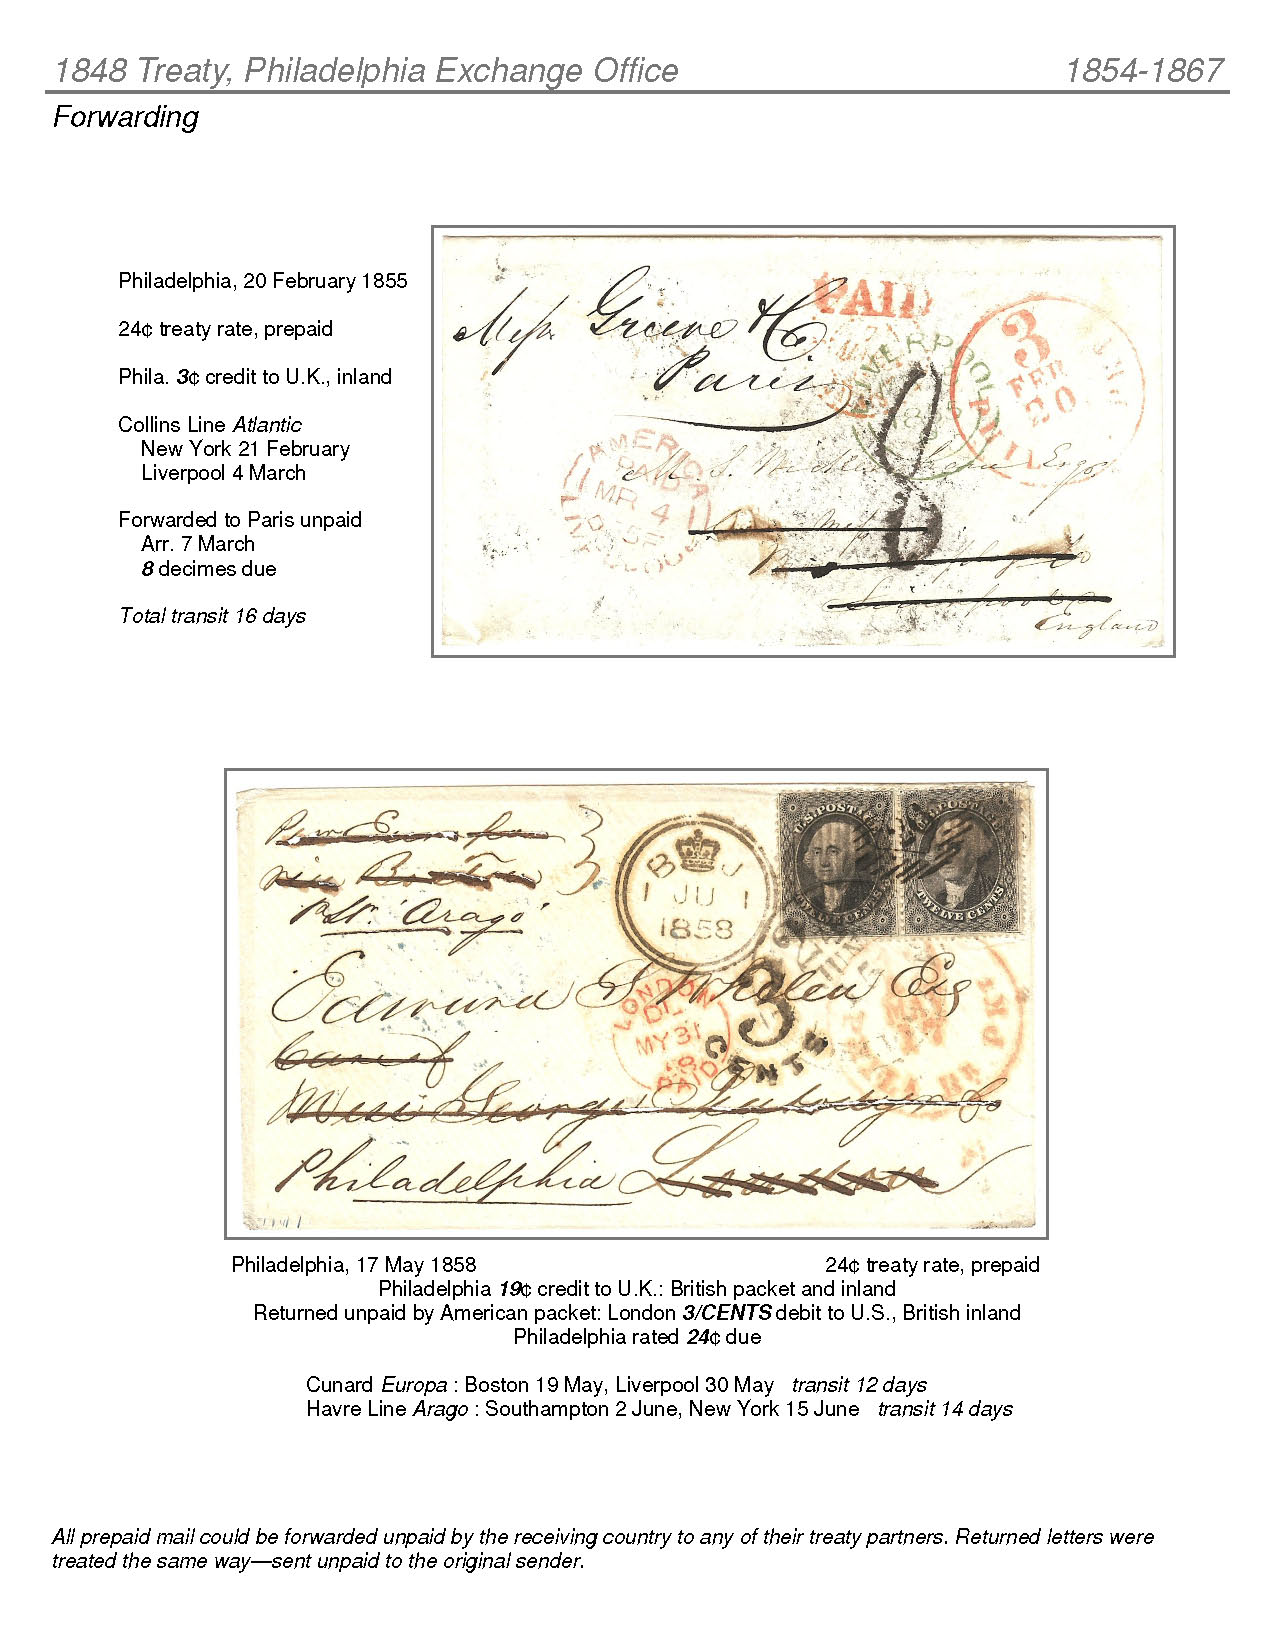 1848 Treaty, Philadelphia Exchange Office 1854-1867
Forwarding
Philadelphia, 20 February 1855
24¢ treaty rate, prepaid
Phila. 3¢ credit to U.K., inland
Collins Line Atlantic
New York 21 February
Liverpool 4 March
Forwarded to Paris unpaid
Arr. 7 March
8 decimes due
Total transit 16 days
PAID
Mess Greene & Co
Paris
LIVERPOOL
3
FEB
20
PHIL
AMERICA
PAID
MR 4
LIVERPOOL
8
Esqr
England
via Boston
pr St. "Arago"
B J
1 JU 1
1858
U.S. POSTAGE
TWELVE CENTS
U.S. POSTAGE
TWELVE CENTS
Edmund S Whelen Esq
LONDON
MY 31
58
PAID
3
CENTS
MAY
17
PHILA
PKT
care of
Mess George Peabody & Co
Philadelphia London
Philadelphia, 17 May 1858 24¢ treaty rate, prepaid
Philadelphia 19¢ credit to U.K.: British packet and inland
Returned unpaid by American packet: London 3/CENTS debit to U.S., British inland
Philadelphia rated 24¢ due
Cunard Europa : Boston 19 May, Liverpool 30 May transit 12 days
Havre Line Arago : Southampton 2 June, New York 15 June transit 14 days
All prepaid mail could be forwarded unpaid by the receiving country to any of their treaty partners. Returned letters were
treated the same way—sent unpaid to the original sender.